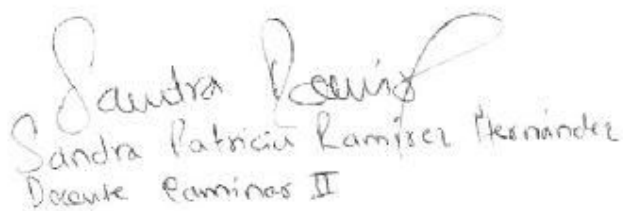 Sandra Ramírez
Sandra Patricia Ramírez Hernández
Docente Caminos II